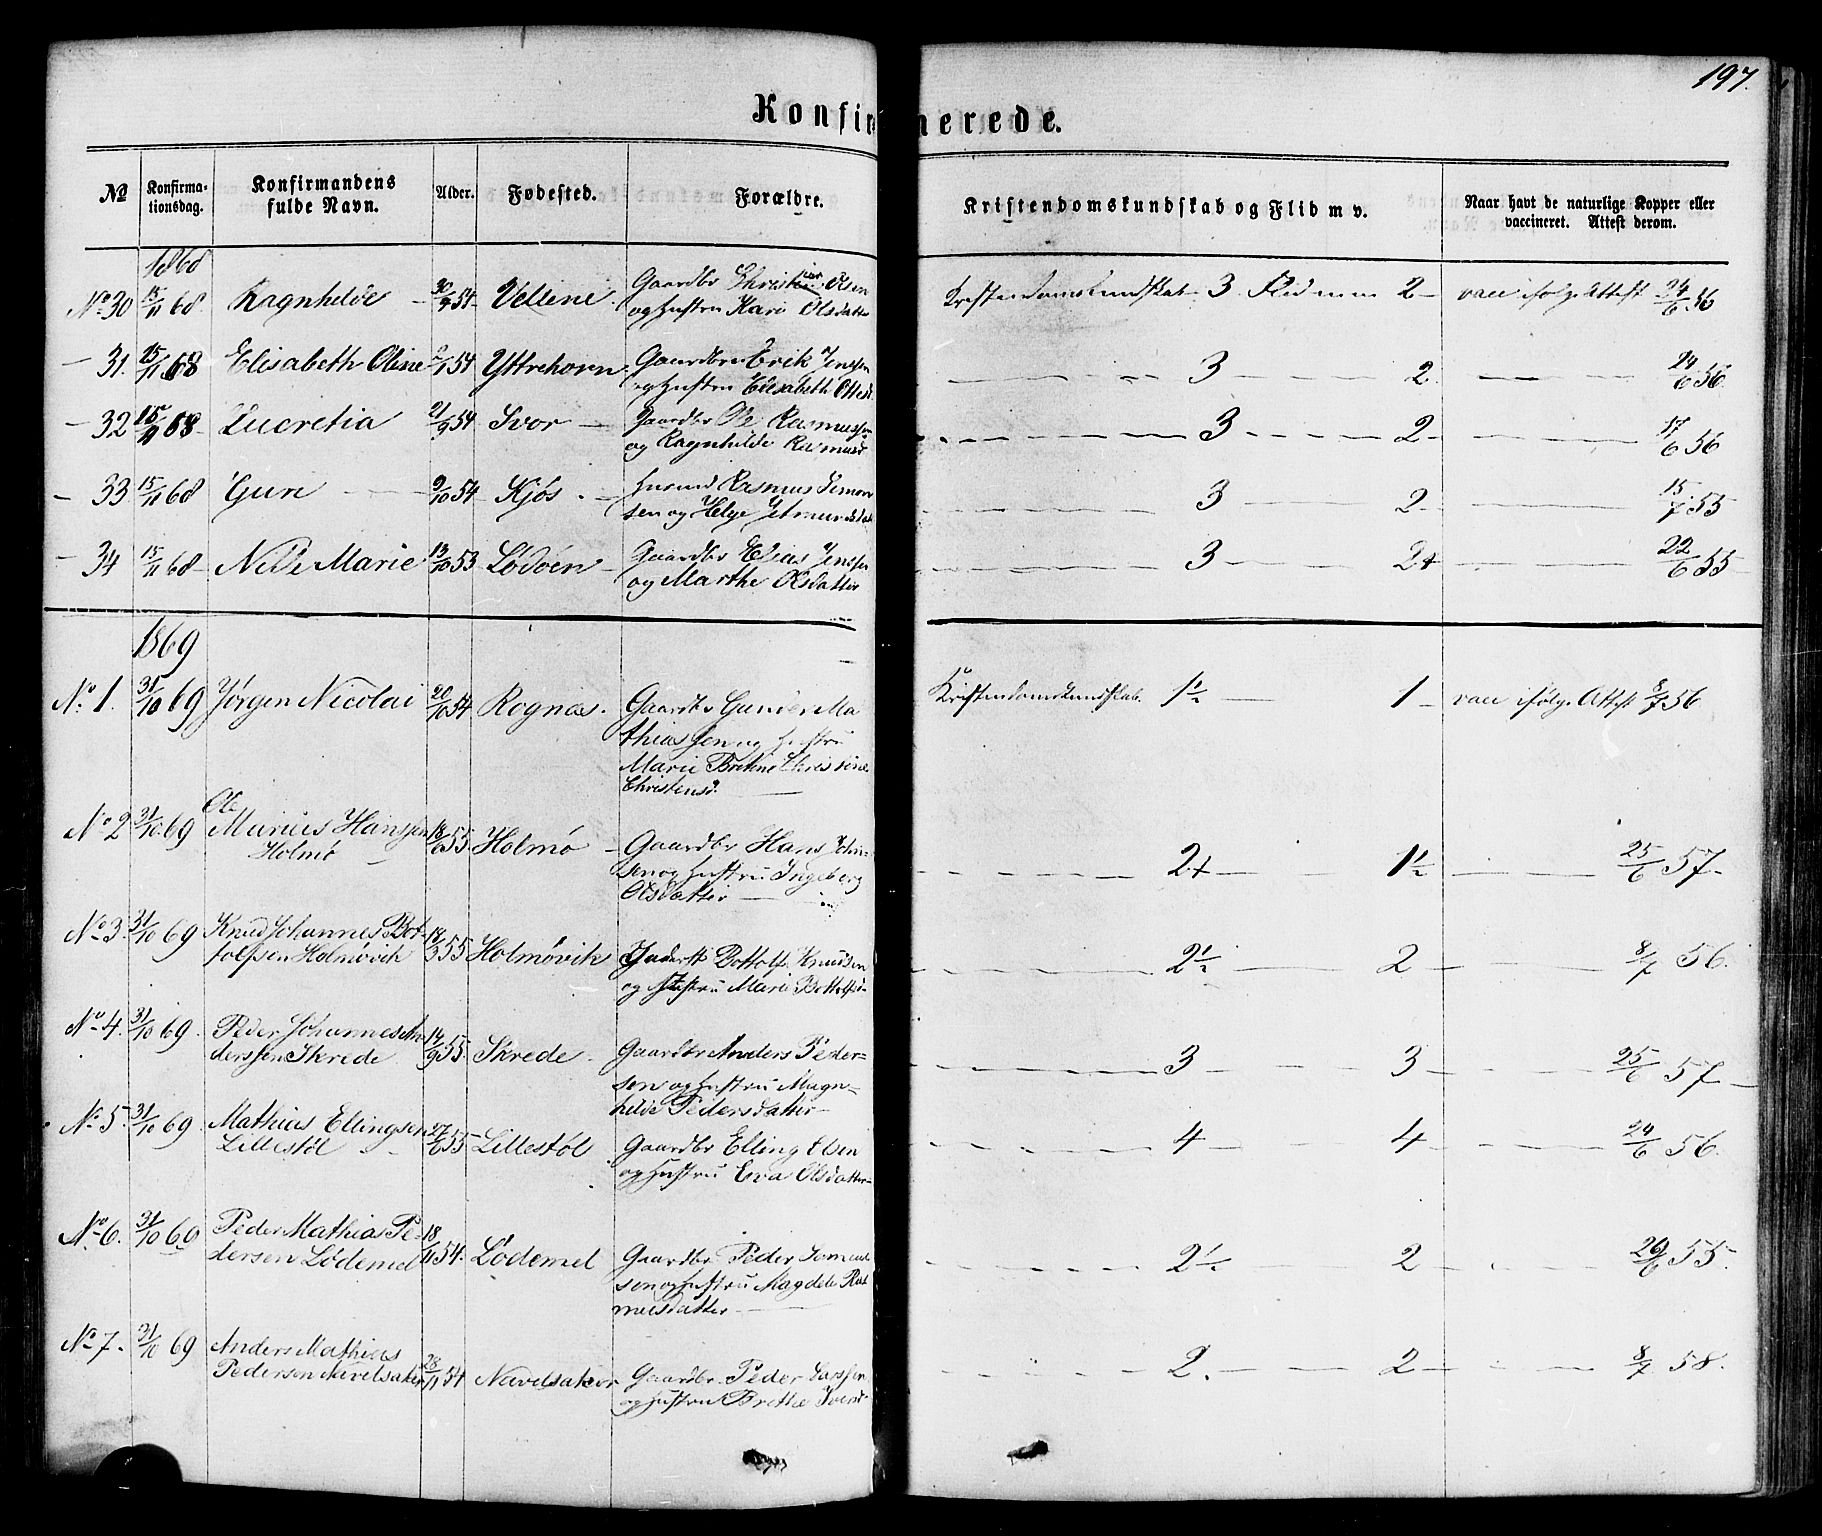 197.
Konfirmerede.
No Konfirma-tionsdag. Konfirmandens fulde Navn. Alder. Fødested. Forældre. Kristendomskundskab og Flid m v. Naar havt de naturlige Kopper eller vaccineret. Attest derom.
1868
No 30 15/11 68. Ragnhilde 30/9 54 Velline Gaardbr Christian Olsen Kristendomskundskab 3 Flid m m 2 vacc ifølge Attest 24/6 56
og Hustru Kari Olsdatter
31. 15/11 68 Elisabeth Oline 54 Yttrehorn Gaardbr Erik Jenssen 3 2 24/6 56
og Hustru Elisabeth Ottesd
32 15/11 68 Lucretia 21/9 54 Svor Gaardbr Ole Rasmussen 3 2 17/6 56
og Ragnhilde Rasmusd
33 15/11 68 Guri 9/10 54 Kjøs Husmd Rasmus Simon 3 2 15/7 55
sen og Helge Jetmundsdat
34 15/11 68 Nelle Marie 13/10 53 Lødøen Gaardbr Elias Jenssen 3 2+ 22/6 55
og Marthe Olsdatter
1869
No 1. 31/10 69 Jørgen Nicolai 20/10 54 Rognæs. Gaardbr Gunder Ma Kristendomskundskab. 1½ 1 vacc ifølge Attest 8/7 56
thiassen og Hustru
Marie Bertine Christine
Christensd.
No 2 31/10 69 Ole
Marius Hanssen 18/6 55 Holmø Gaardbr Hans John- 2+ 1½ 25/6 57
Holmø sen og Hustru Ingeberg
Olsdatter
No 3. 31/10 69 Knud Johannes Bot- 18/3 55 Holmøvik Inderst Bottolf Knudsen 2½ 2 8/7 56.
tolfsen Holmøvik og Hustru Mari Bottolfsd
No 4. 31/10 69. Peder Johannes An 14/9 55. Skrede Gaardbr Anders Peder- 3 3 25/6 57
derssen Skrede sen og Hustru Magn-
hilde Pedersdatter
No 5. 31/10 69. Mathias Ellingsen 27/6 55 Lillestøl Gaardbr Elling Olsen 4 4 24/6 56.
Lillestøl og Hustru Eva Olsdatter
No 6. 31/10 69 Peder Mathias Pe- 18/11 54. Lødemel Gaardbr Peder 2½ 2 26/6 55.
dersen Lødemel sen og Hustru Magdele Ras
musdatter
No 7. 31/10 69 Anders Mathias
Pedersen Navelsaker 28/11 54 Navelsaker Gaardbr. Peder Larssen 2. 2 8/7 58.
og Hustru Brethe Iversd